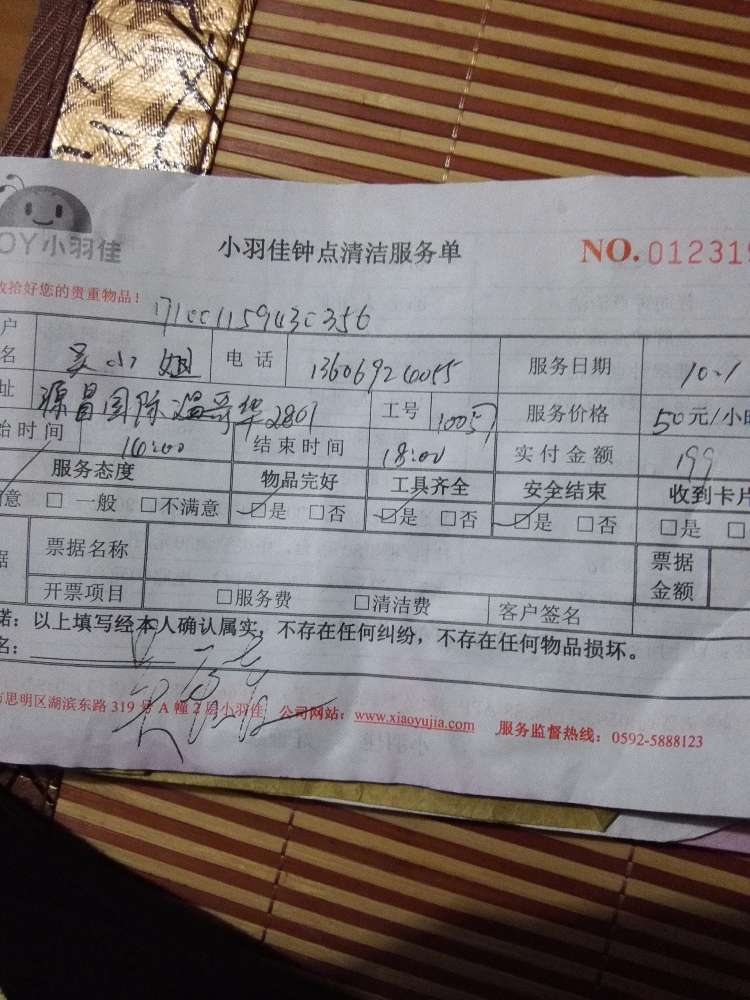 OY小羽佳 小羽佳钟点清洁服务单 NO.012319
收拾好您的贵重物品！
户名 吴小姐 电话 服务日期 10.1
址 源昌国际温哥华2801 工号 服务价格 50元/小
始时间 14:00 结束时间 18:00 实付金额 199
服务态度 物品完好 工具齐全 安全结束 收到卡片
意 □ 一般 □不满意 □是 □否 □是 □否 □是 □否 □是 □
据 票据名称 票据金额
开票项目 □服务费 □清洁费 客户签名
诺：以上填写经本人确认属实，不存在任何纠纷，不存在任何物品损坏。
名：
市思明区湖滨东路 319 号 A 幢 2 层小羽佳 公司网站：www.xiaoyujia.com 服务监督热线：0592-5888123